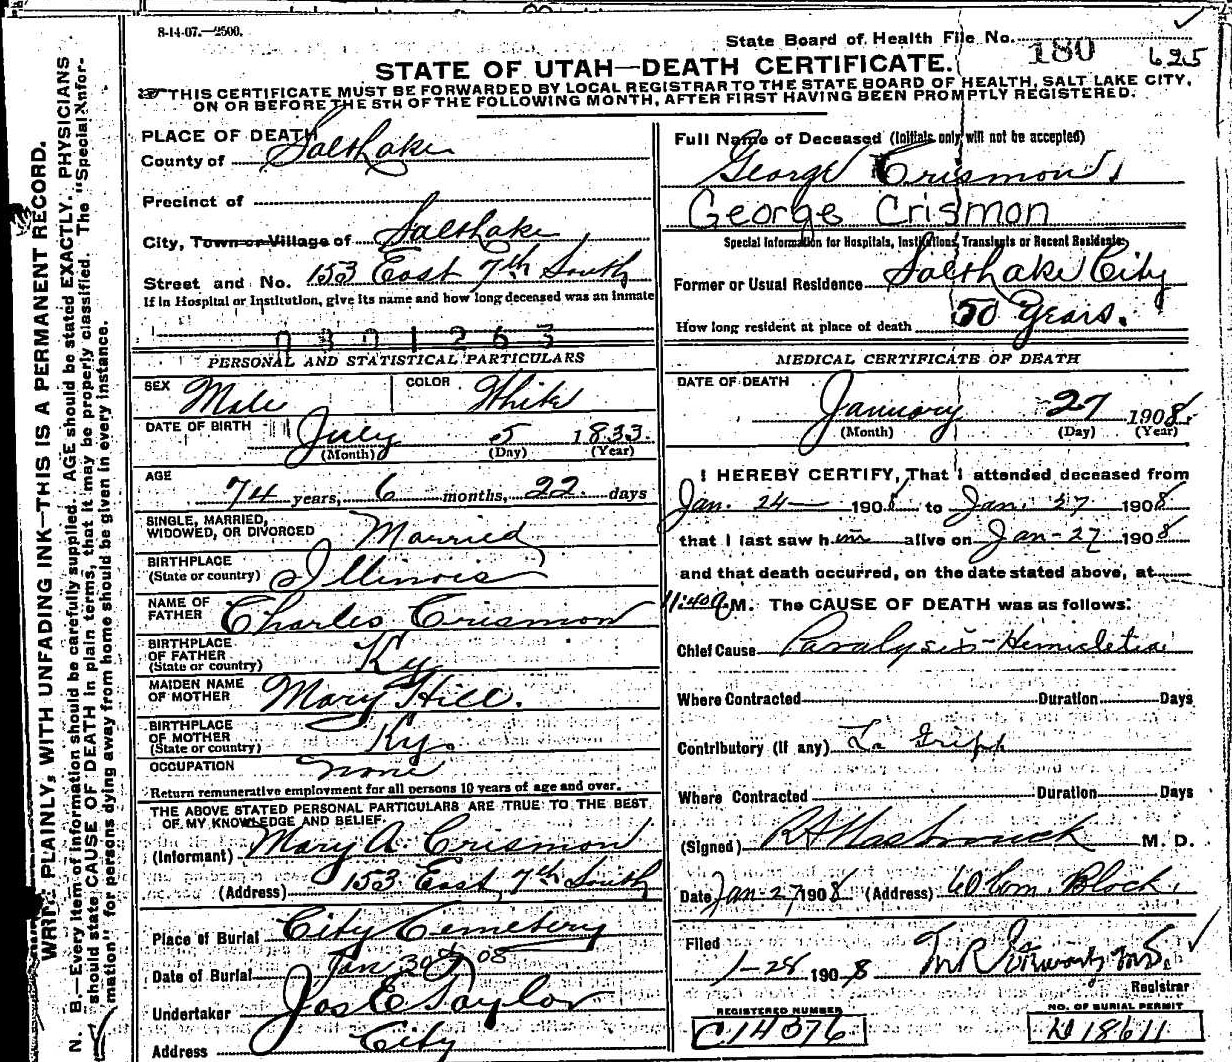 8-14-07.—2500.
State Board of Health File No. 180
625
STATE OF UTAH—DEATH CERTIFICATE.
THIS CERTIFICATE MUST BE FORWARDED BY LOCAL REGISTRAR TO THE STATE BOARD OF HEALTH, SALT LAKE CITY,
ON OR BEFORE THE 5TH OF THE FOLLOWING MONTH, AFTER FIRST HAVING BEEN PROMPTLY REGISTERED.
WRITE PLAINLY, WITH UNFADING INK—THIS IS A PERMANENT RECORD.
N. B.—Every item of information should be carefully supplied. AGE should be stated EXACTLY. PHYSICIANS
should state CAUSE OF DEATH in plain terms, that it may be properly classified. The "Special Infor-
mation" for persons dying away from home should be given in every instance.
PLACE OF DEATH
County of Salt Lake
Precinct of
City, Town or Village of Salt Lake
Street and No. 153 East 7th South
If in Hospital or Institution, give its name and how long deceased was an inmate
0301263
PERSONAL AND STATISTICAL PARTICULARS
SEX Male COLOR White
DATE OF BIRTH July 5 1833.
(Month) (Day) (Year)
AGE
74 years, 6 months, 22 days
SINGLE, MARRIED,
WIDOWED, OR DIVORCED Married
BIRTHPLACE
(State or country) Illinois
NAME OF
FATHER Charles Crismon
BIRTHPLACE
OF FATHER
(State or country) Ky
MAIDEN NAME
OF MOTHER Mary Hill.
BIRTHPLACE
OF MOTHER
(State or country) Ky.
OCCUPATION none
Return remunerative employment for all persons 10 years of age and over.
THE ABOVE STATED PERSONAL PARTICULARS ARE TRUE TO THE BEST
OF MY KNOWLEDGE AND BELIEF.
(Informant) Mary A. Crismon
(Address) 153 East 7th South
Place of Burial City Cemetery
Date of Burial Jan 30th 08
Undertaker Jos E Taylor
Address City
Full Name of Deceased (Initials only will not be accepted)
George Crismon,
George Crismon
Special Information for Hospitals, Institutions, Transients or Recent Residents
Former or Usual Residence Salt Lake City
How long resident at place of death 50 Years.
MEDICAL CERTIFICATE OF DEATH
DATE OF DEATH
January 27 1908
(Month) (Day) (Year)
I HEREBY CERTIFY, That I attended deceased from
Jan. 24 1908 to Jan. 27 1908
that I last saw him alive on Jan-27 1908
and that death occurred, on the date stated above, at
11:40 A M. The CAUSE OF DEATH was as follows:
Chief Cause Paralysis-
Where Contracted Duration Days
Contributory (if any) La Gripp
Where Contracted Duration Days
(Signed) R A Hasbrouck M. D.
Date Jan-27 1908 (Address) Com. Block.
Filed
1-28 1908
Registrar
REGISTERED NUMBER
C14376
NO. OF BURIAL PERMIT
18611